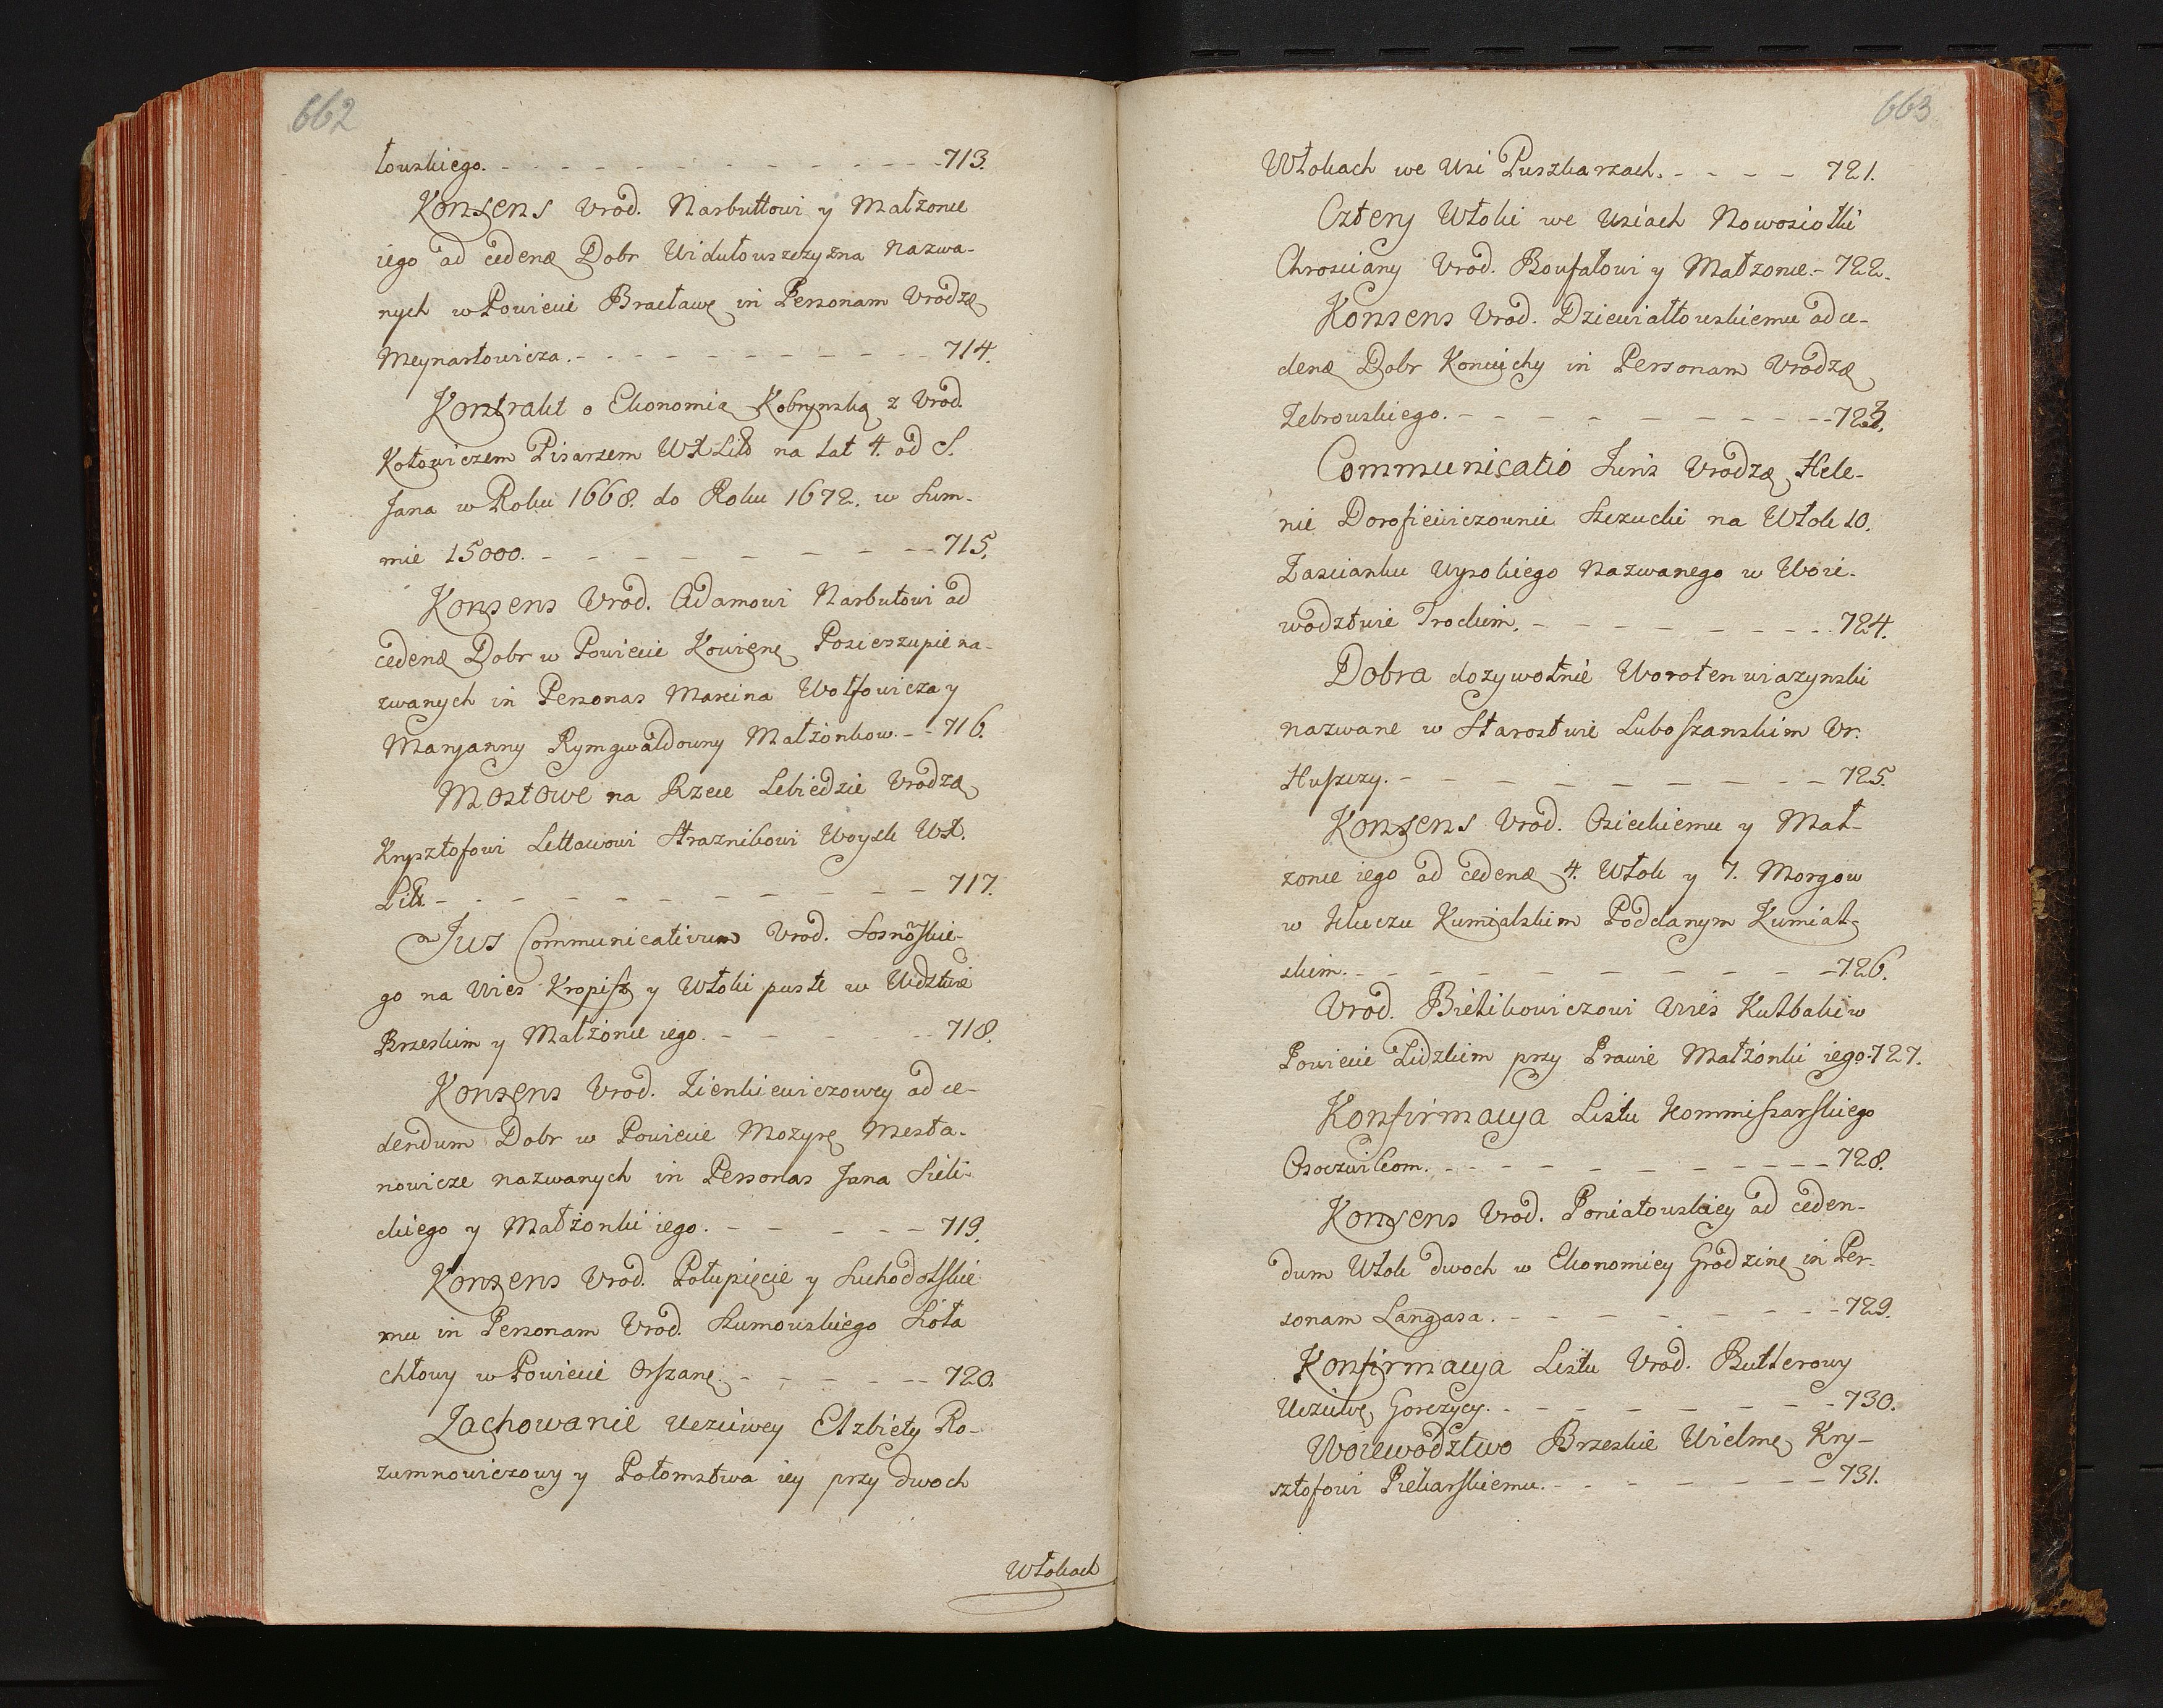 662
łowskiego. - - - - - - - - - - - 713.
Konsens Vrod. Narbuttowi y Małzonce
iego ad cedenẹ Dobr Widułowszczyzna nazwa-
nych w Powiecie Bracławę in Personam Vrodzę
Meynartowicza. - - - - - - - - - 714.
Kontrakt o Ekonomią Kobrynską z Vrod.
Kotowiczem Pisarzem WXLitõ na Lat 4. od S.
Jana w Roku 1668. do Roku 1672. w Sum-
mie 15000. - - - - - - - - 715.
Konsens Vrod. Adamowi Narbutowi ad
cedenę Dobr w Powiecie Kowienę Posieszupie na-
zwanych in Personas Marcina Wolfowicza y
Maryanny Rymgwaldowny Małżonkow. - - 716.
Mostowe na Rzece Lebiedzie Vrodzą
Krysztofowi Lettawowi Straznikowi Woysk WX.
Litt - - - - - - - - - - 717.
Jus Communicativum Vrod. Sosnõskie-
go na Wies Kropiszt y Włoki puste w Wdztwie
Brzeskim y Małżonce iego. - - - - - 718.
Konsens Vrod. Zienkiewiczowey ad ce-
dendum Dobr w Powiecie Mozyrę Mesta-
nowicze nazwanych in Personas Jana Sieli-
ckiego y Małżonki iego. - - - - - 719.
Konsens Vrod. Połupięcie y Suchodolskie
mu in Personam Vrod. Szumowskiego Siola
chłowy w Powiecie Orszanę. - - - - - 720.
Zachowanie Uczciwey Elzbiety Ro-
zumnowiczowy y Potomstwa iey przy dwoch
Włokach
663.
Włokach we Wsi Puszkarzach. - - - - 721.
Cztery Włoki we Wsiach Nowosiołki
Chrosciany Vrod. Boufałowi y Małzonce. - 722.
Konsens Vrod. Dziewiałtowskiemu ad ce-
denę Dobr Koniuchy in Personam Vrodzę
Zebrowskiego. - - - - - - - - - 723.
Communicatio Juris Vrodzę Hele-
nie Dorofieiwiczownie Szczucki na Włok 10.
Zascianku Wysokiego nazwanego w Woie-
wodztwie Trockim. - - - - - - - 724.
Dobra dozywotnie Woroten wiazynski
nazwane w Starostwie Luboszanskim Vr.
Huszczy. - - - - - - - - - 725.
Konsens Vrod. Osieckiemu y Mał-
zonce iego ad cedenę 4. Włok y 7. Morgow
w Kluczu Kumialskim Poddanym Kumial-
skim. - - - - - - - - - 726.
Vrod. Bielikowiczowi Wies Kulbaki w
Powiecie Lidzkim przy Prawie Małżonki iego. 727.
Konfirmacya Listu Kommissarskiego
Osocznikom. - - - - - - - - - 728.
Konsens Vrod. Poniatowskiey ad ceden-
dum Włok dwoch w Ekonomiey Grodzinę in Per-
sonam Langasa. - - - - - - - 729.
Konfirmacya Listu Vrod. Butlerowy
Uczciwę Gorczycy. - - - - - - - 730.
Woiewodztwo Brzeskie Wielmę Kry-
sztofowi Piekarskiemu. - - - - - - - 731.